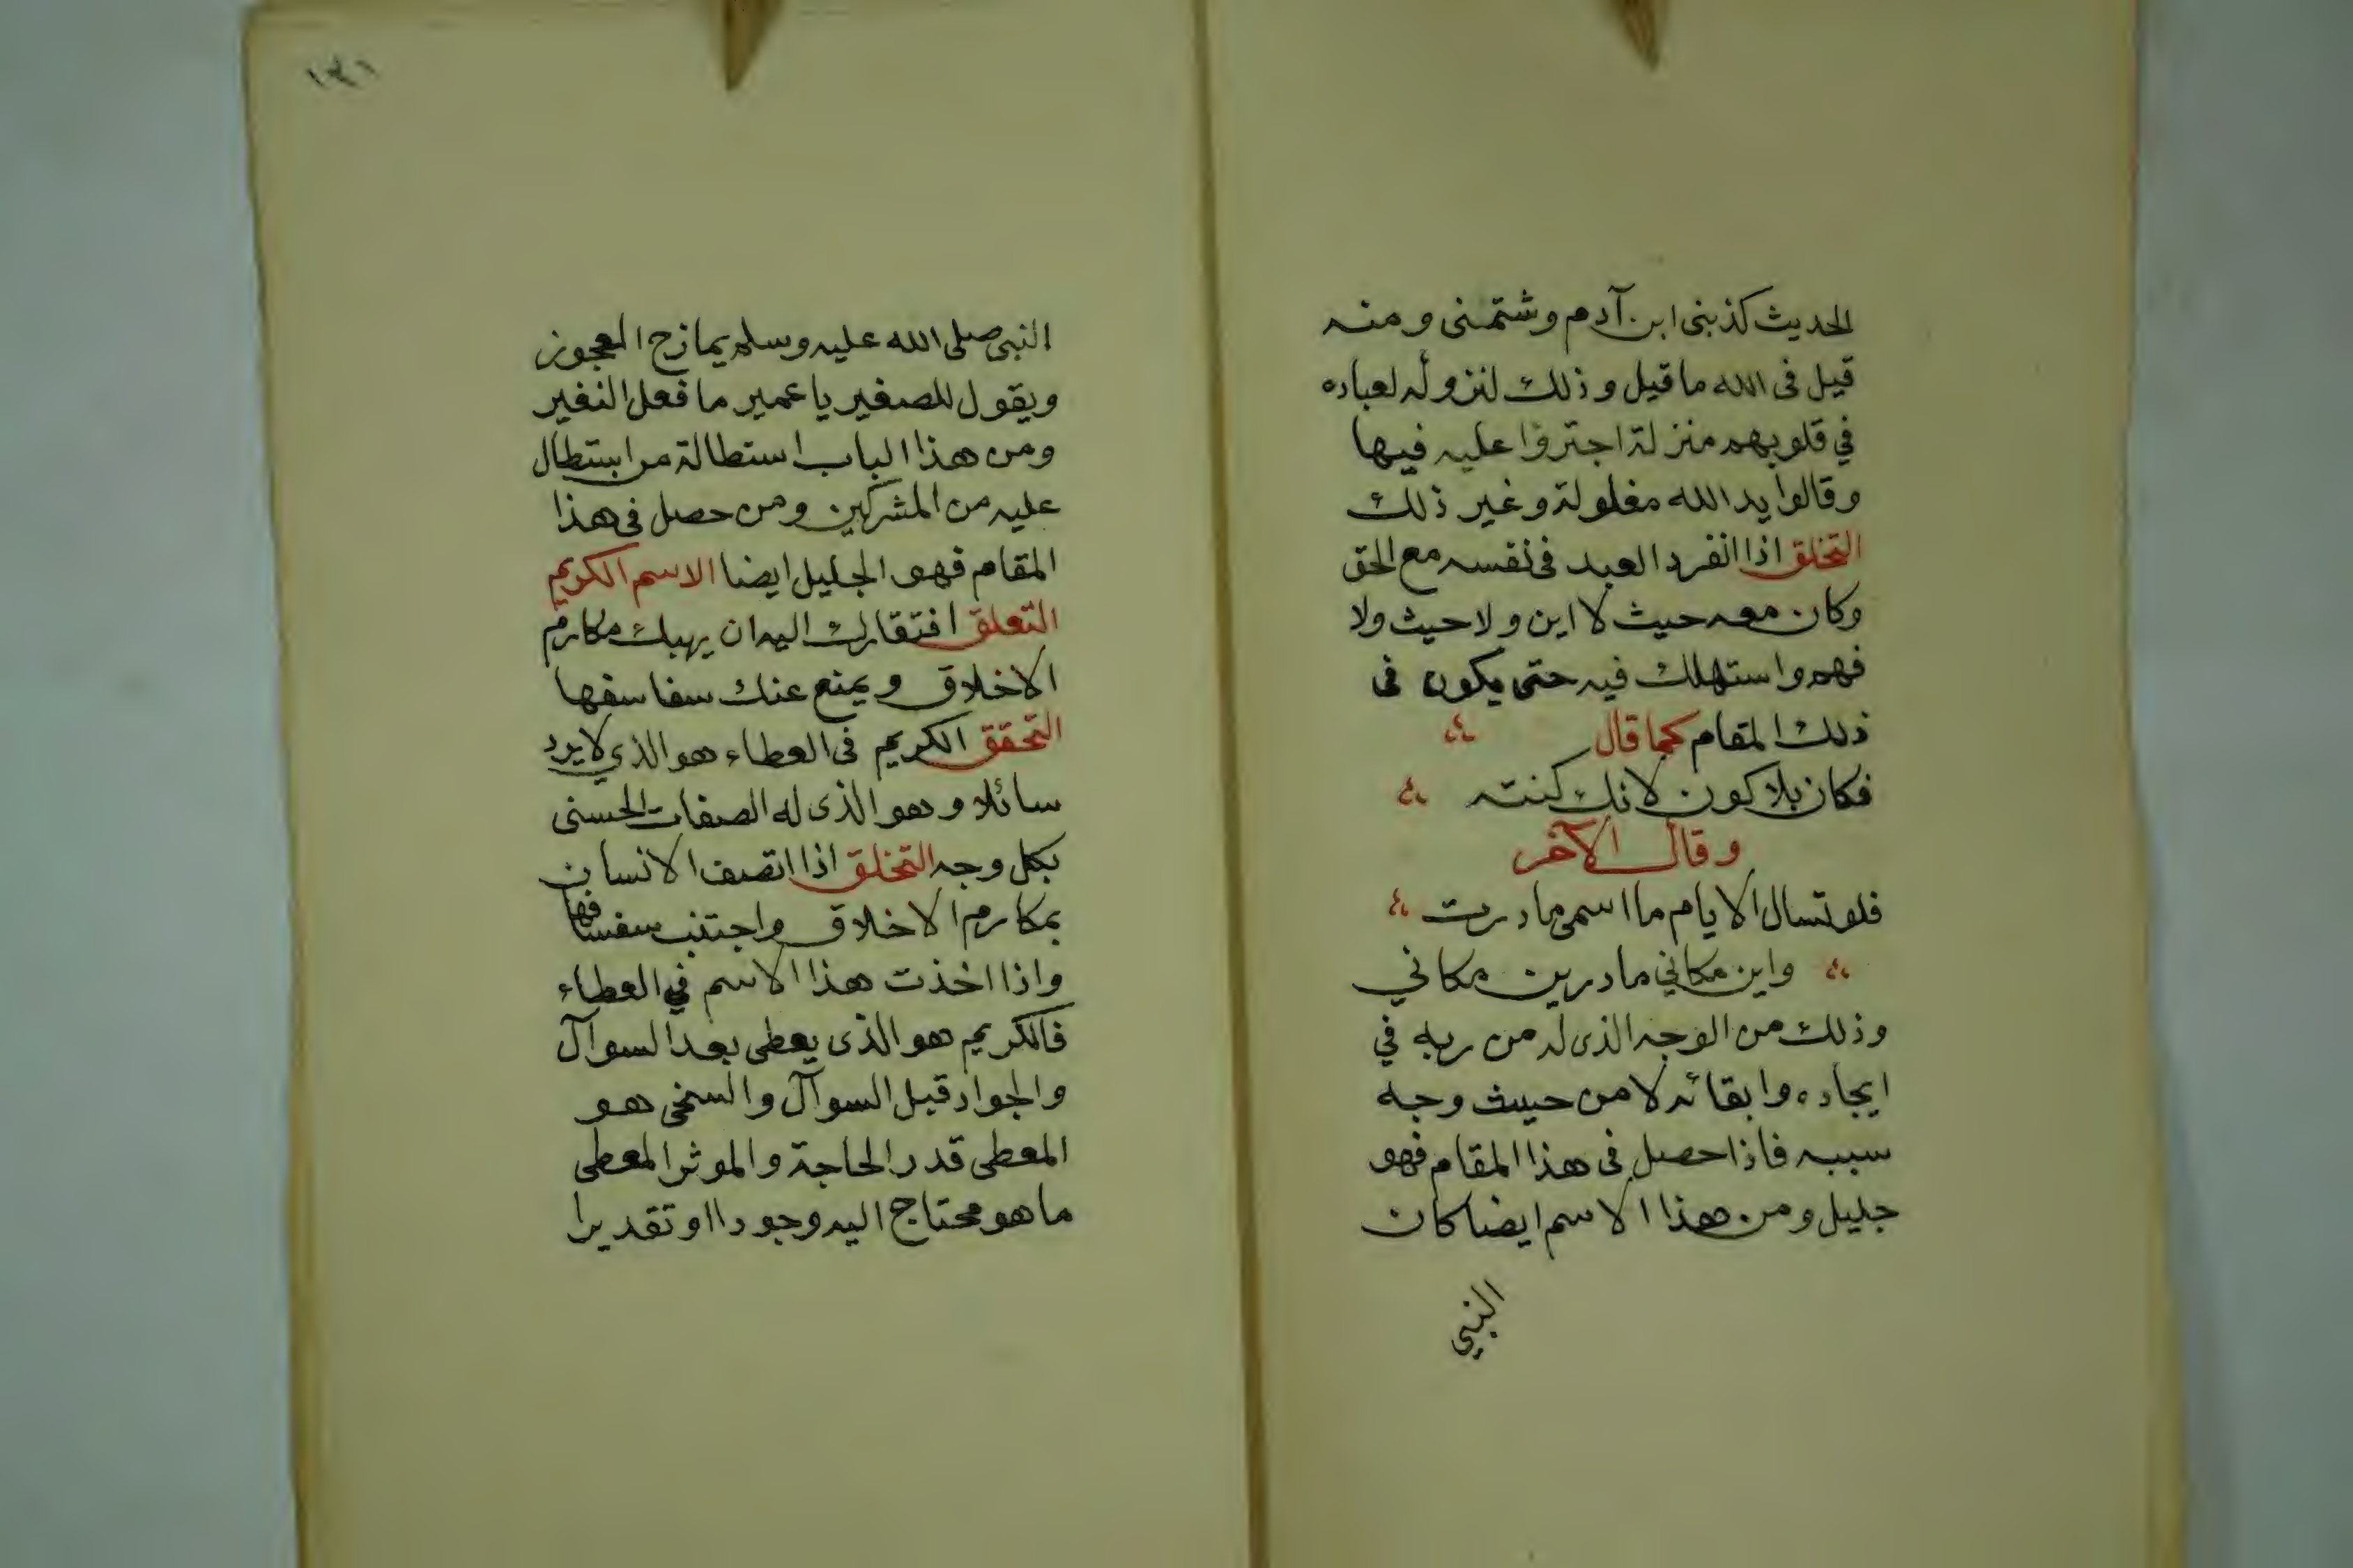 الحديث كذبنى ابن آدم وشتمنى ومنه
قيل فى الله ما قيل وذلك لنزوله لعباده
في قلوبهم منزلة اجترؤا عليه فيها
وقالوا يد الله مغلولة وغير ذلك
التخلق اذا انفرد العبد فى نفسه مع الحق
وكان معه حيث لا اين ولا حيث ولا
فهم واستهلك فيه حتى يكون فى
ذلك المقام كما قال
فكان بلا كون لانك كنته
وقال الآخر
فلو تسال الايام ما اسمى ما درت
واين مكاني ما درين مكاني
وذلك من الوجه الذى له من ربه في
ايجاده وابقائه لا من حيث وجه
سببه فاذا حصل فى هذا المقام فهو
جليل ومن هذا الاسم ايضا كان
النبي
النبى صلى الله عليه وسلم يمازح العجوز
ويقول للصغير يا عمير ما فعل النغير
ومن هذا الباب استطالة من استطال
عليه من المشركين ومن حصل فى هذا
المقام فهو الجليل ايضا الاسم الكريم
التعلق افتقارك اليه ان يهبك مكارم
الاخلاق ويمنع عنك سفاسفها
التحقق الكريم فى العطاء هو الذي لا يرد
سائلا وهو الذى له الصفات الحسنى
بكل وجه التخلق اذا اتصف الانسان
بمكارم الاخلاق واجتنب سفسافها
واذا اخذت هذا الاسم في العطاء
فالكريم هو الذى يعطى بعد السوآل
والجواد قبل السوآل والسخى هو
المعطى قدر الحاجة والموثر المعطى
ما هو محتاج اليه وجودا او تقديرا